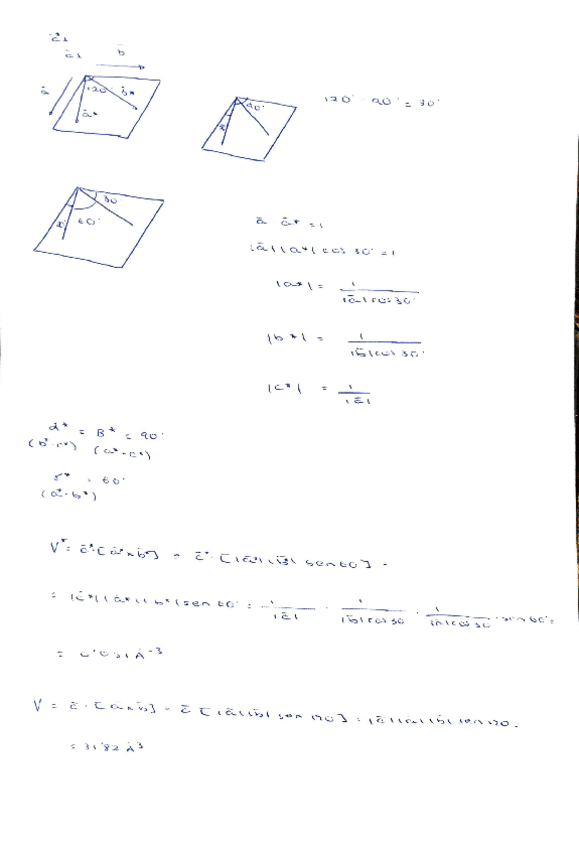 c⃗⊥
c⃗⊥ b̄
ā 120° b* a*
90° 120° - 90° = 30°
30 60°
ā · ā* = 1
|ā| |a*| cos 30° = 1
|a*| = 1 / |ā| cos 30°
|b*| = 1 / |b̄| cos 30°
|c*| = 1 / |c̄|
α* = β* = 90°
(b*·c*) (a*·c*)
γ* = 60°
(a*·b*)
V* = c̄*·[ā*×b̄*] = c̄*·[|ā*| |b̄*| sen 60] =
= |c*| |a*| |b*| sen 60° = 1 / |c̄| · 1 / |b̄| cos 30 · 1 / |ā| cos 30 · sen 60° =
= 0'031 Å⁻³
V = c̄·[ā×b̄] = c̄ [|ā| |b̄| sen 120] = |c̄| |ā| |b̄| sen 120 =
= 31'82 Å³